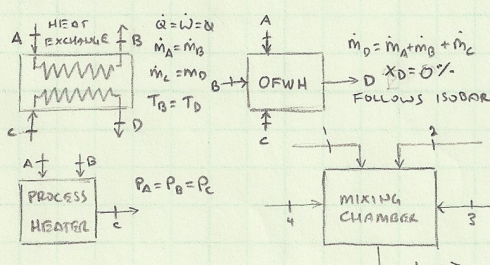 HEAT
EXCHANGE
A
B
C
D
Q̇=Ẇ=Q
ṁA=ṁB
ṁC=ṁD
TB=TD
A
B
OFWH
D
C
ṁD=ṁA+ṁB+ṁC
XD=0%
FOLLOWS ISOBAR
A
B
PROCESS
HEATER
C
PA=PB=PC
1
2
MIXING
CHAMBER
4
3